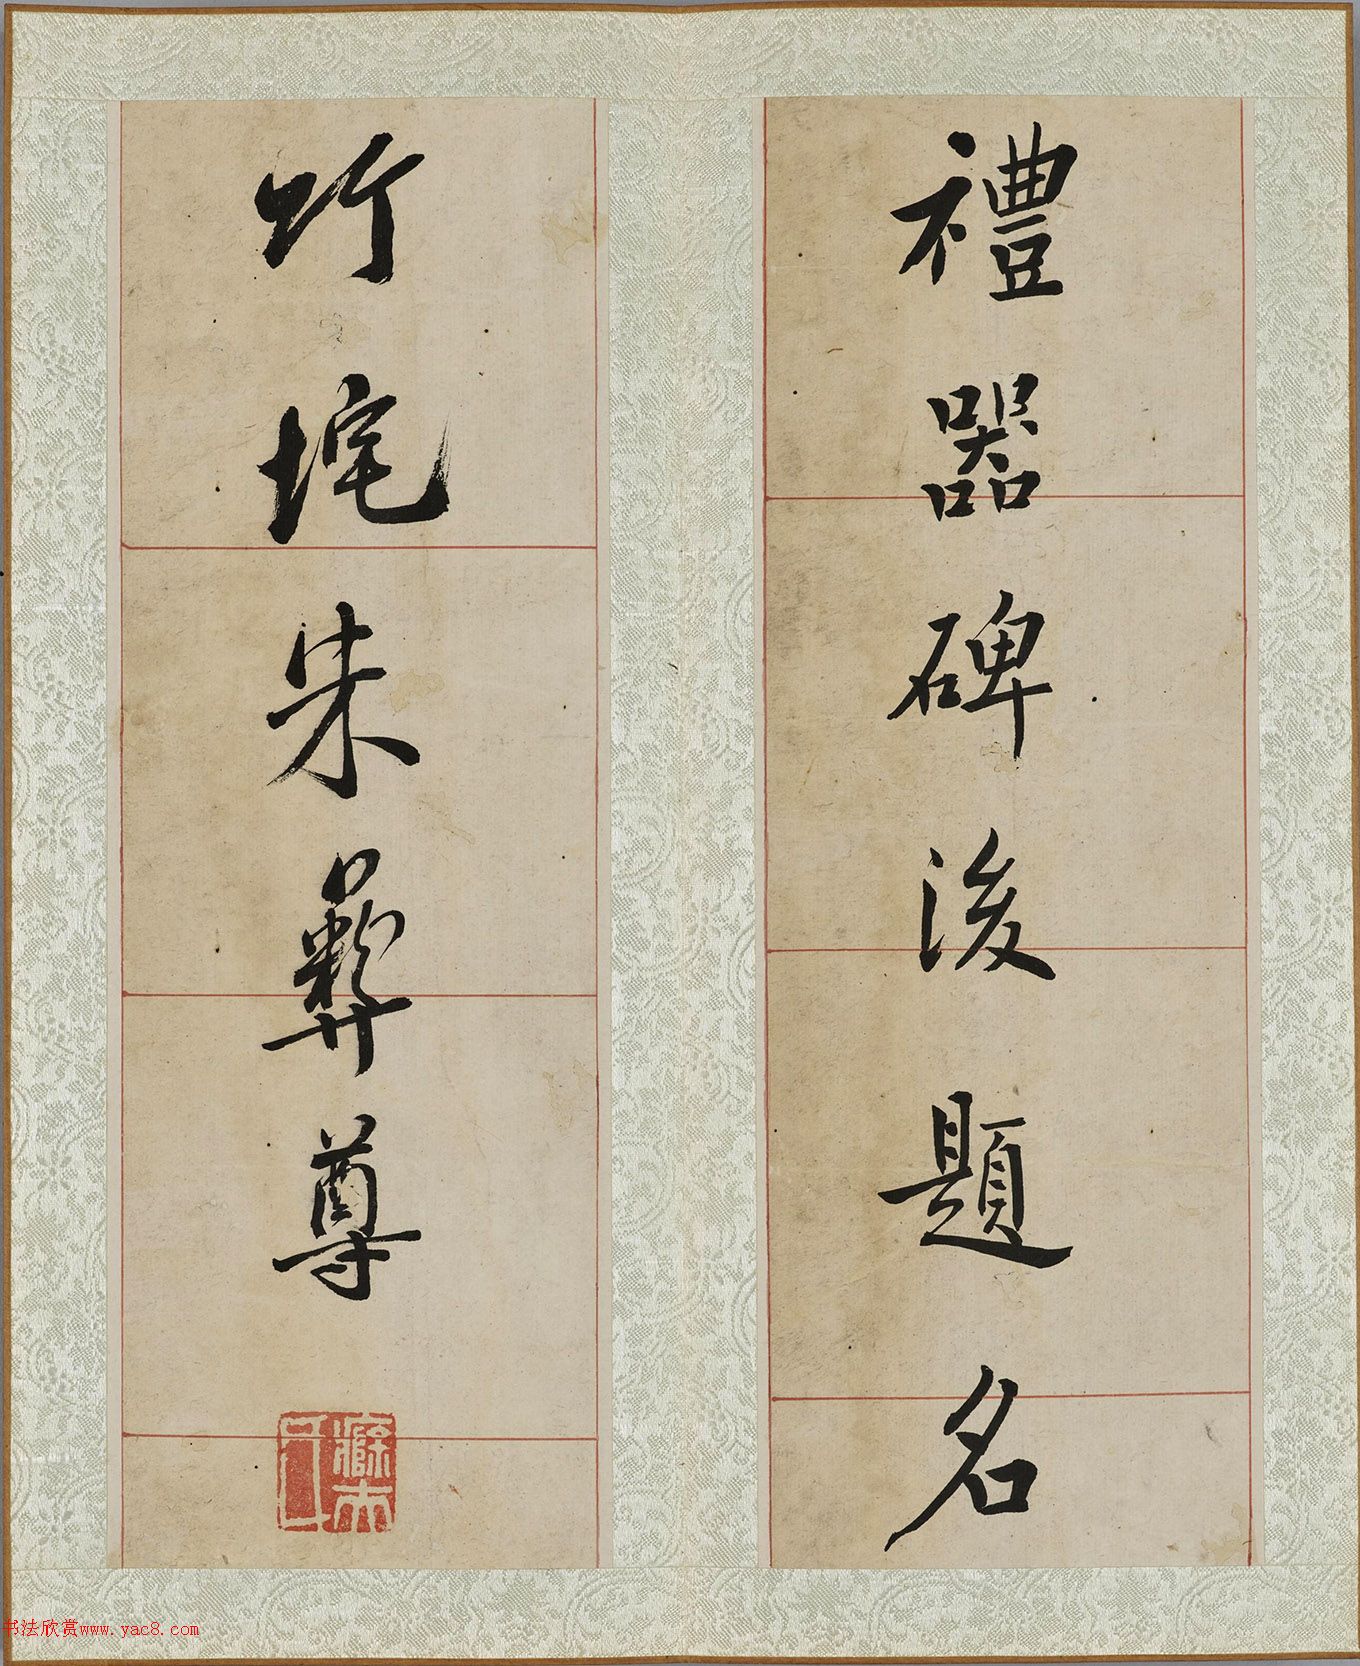 禮器碑後題名
竹垞朱彝尊
书法欣赏www.yac8.com